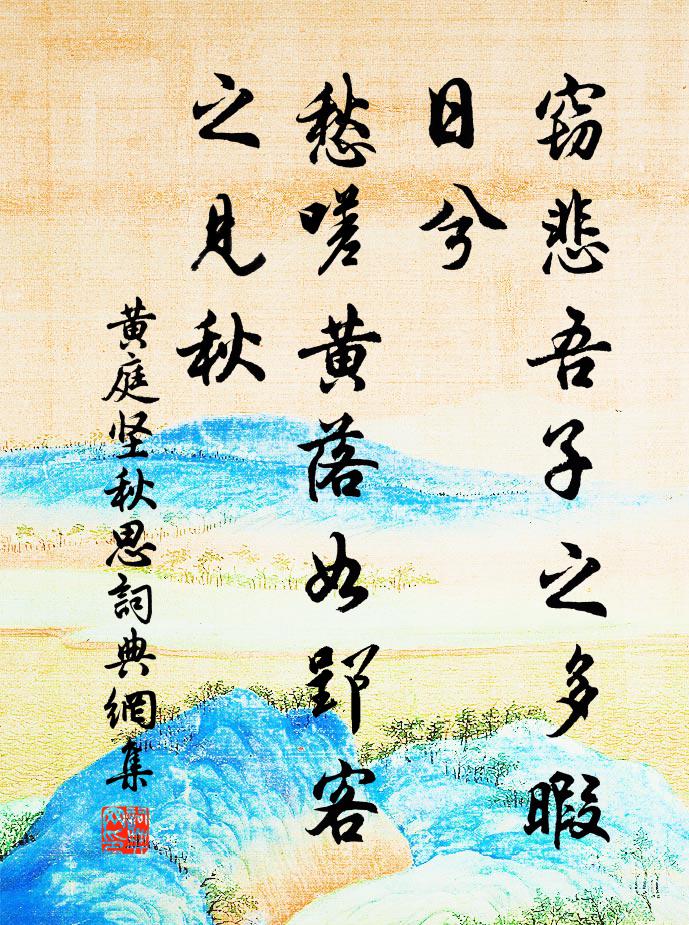 窃悲吾子之多暇
日兮
愁嗟黄落如郢客
之見秋
黄庭坚秋思詞典網集